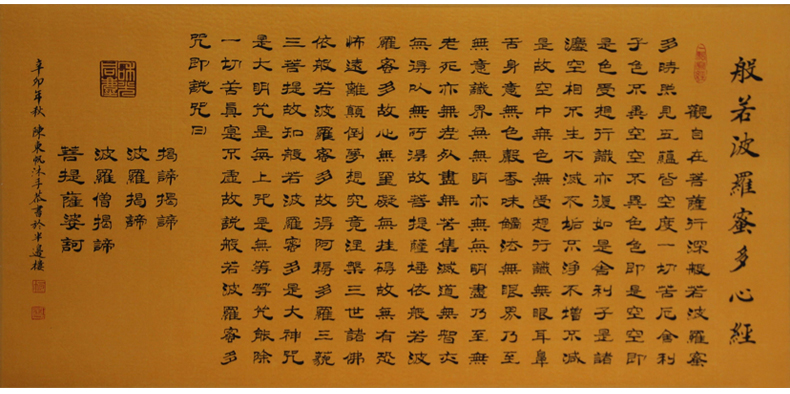 般若波羅蜜多心經
觀自在菩薩行深般若波羅蜜
多時照見五蘊皆空度一切苦厄舍利
子色不異空空不異色色即是空空即
是色受想行識亦復如是舍利子是諸
灋空相不生不滅不垢不淨不增不減
是故空中無色無受想行識無眼耳鼻
舌身意無色聲香味觸法無眼界乃至
無意識界無無明亦無無明盡乃至無
老死亦無老死盡無苦集滅道無智亦
無得以無所得故菩提薩埵依般若波
羅蜜多故心無罣礙無挂碍故無有恐
怖遠離顛倒夢想究竟涅槃三世諸佛
依般若波羅蜜多故得阿耨多羅三藐
三菩提故知般若波羅蜜多是大神咒
是大明咒是無上咒是無等等咒能除
一切苦真實不虛故說般若波羅蜜多
咒即說咒曰
揭諦揭諦
波羅揭諦
波羅僧揭諦
菩提薩婆訶
辛卯年秋陳東帆沐手恭書於半邊樓